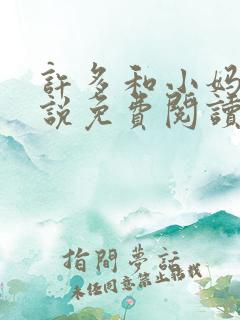 許多和小妈
說免費閱讀
指間夢話
未经同意禁止转载